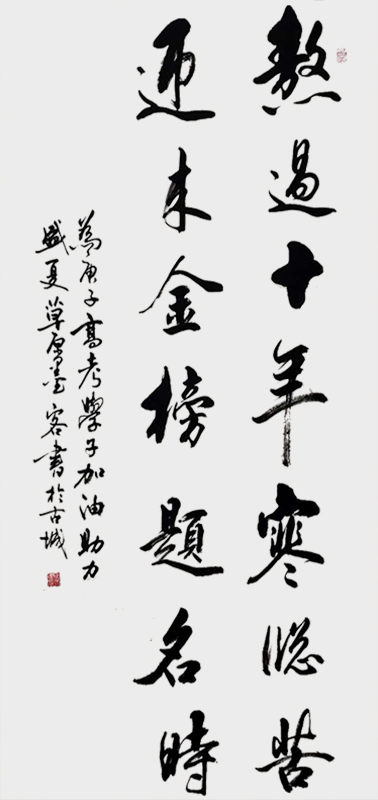 熬過十年寒窓苦
迎来金榜題名時
為庚子高考學子加油助力
盛夏草原墨客書於古城